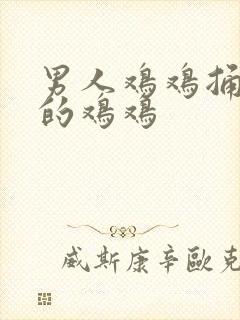 男人鸡鸡捅
的鸡鸡
威斯康辛歐克